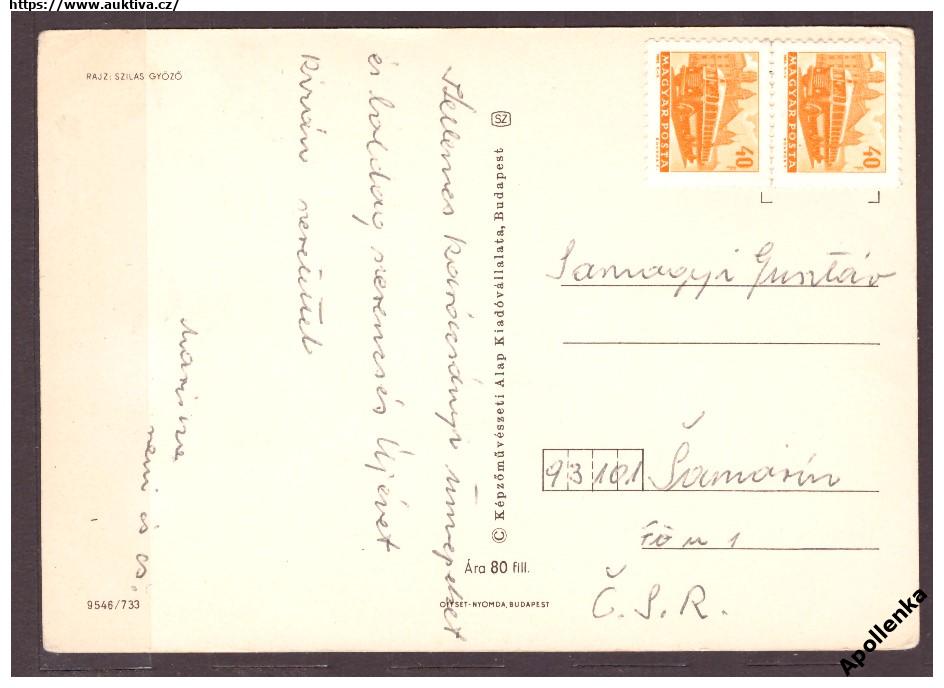 https://www.auktiva.cz/
RAJZ: SZILAS GYŐZŐ
Kellemes karácsonyi ünnepeket
és boldog, szerencsés Újévet
kíván szeretettel
néni és cs.
9546/733
SZ
© Képzőművészeti Alap Kiadóvállalata, Budapest
Ára 80 fill.
OFFSET-NYOMDA, BUDAPEST
MAGYAR POSTA
40 f
MAGYAR POSTA
40 f
Samagyi Gusztáv
93101 Šamorín
Fő u 1
Č.S.R.
Apollenka